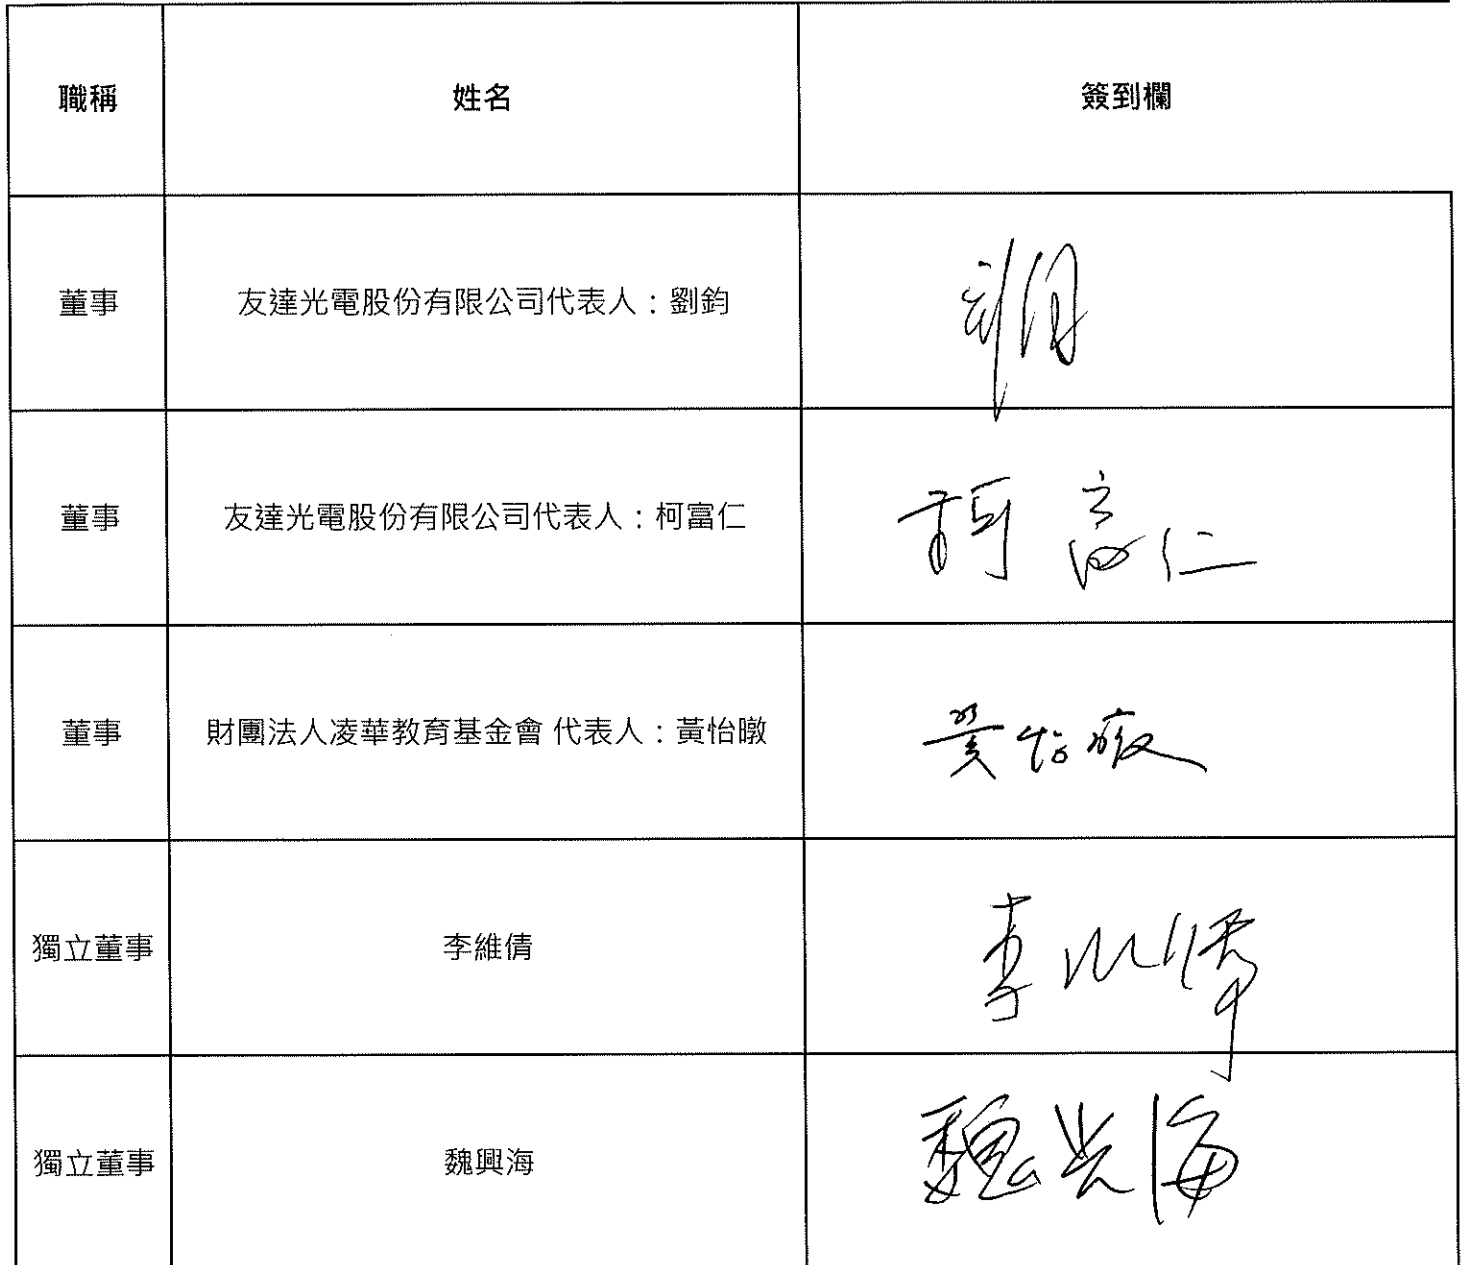 職稱 姓名 簽到欄
董事 友達光電股份有限公司代表人：劉鈞
董事 友達光電股份有限公司代表人：柯富仁 柯富仁
董事 財團法人凌華教育基金會 代表人：黃怡暾 黃怡暾
獨立董事 李維倩 李維倩
獨立董事 魏興海 魏兴海